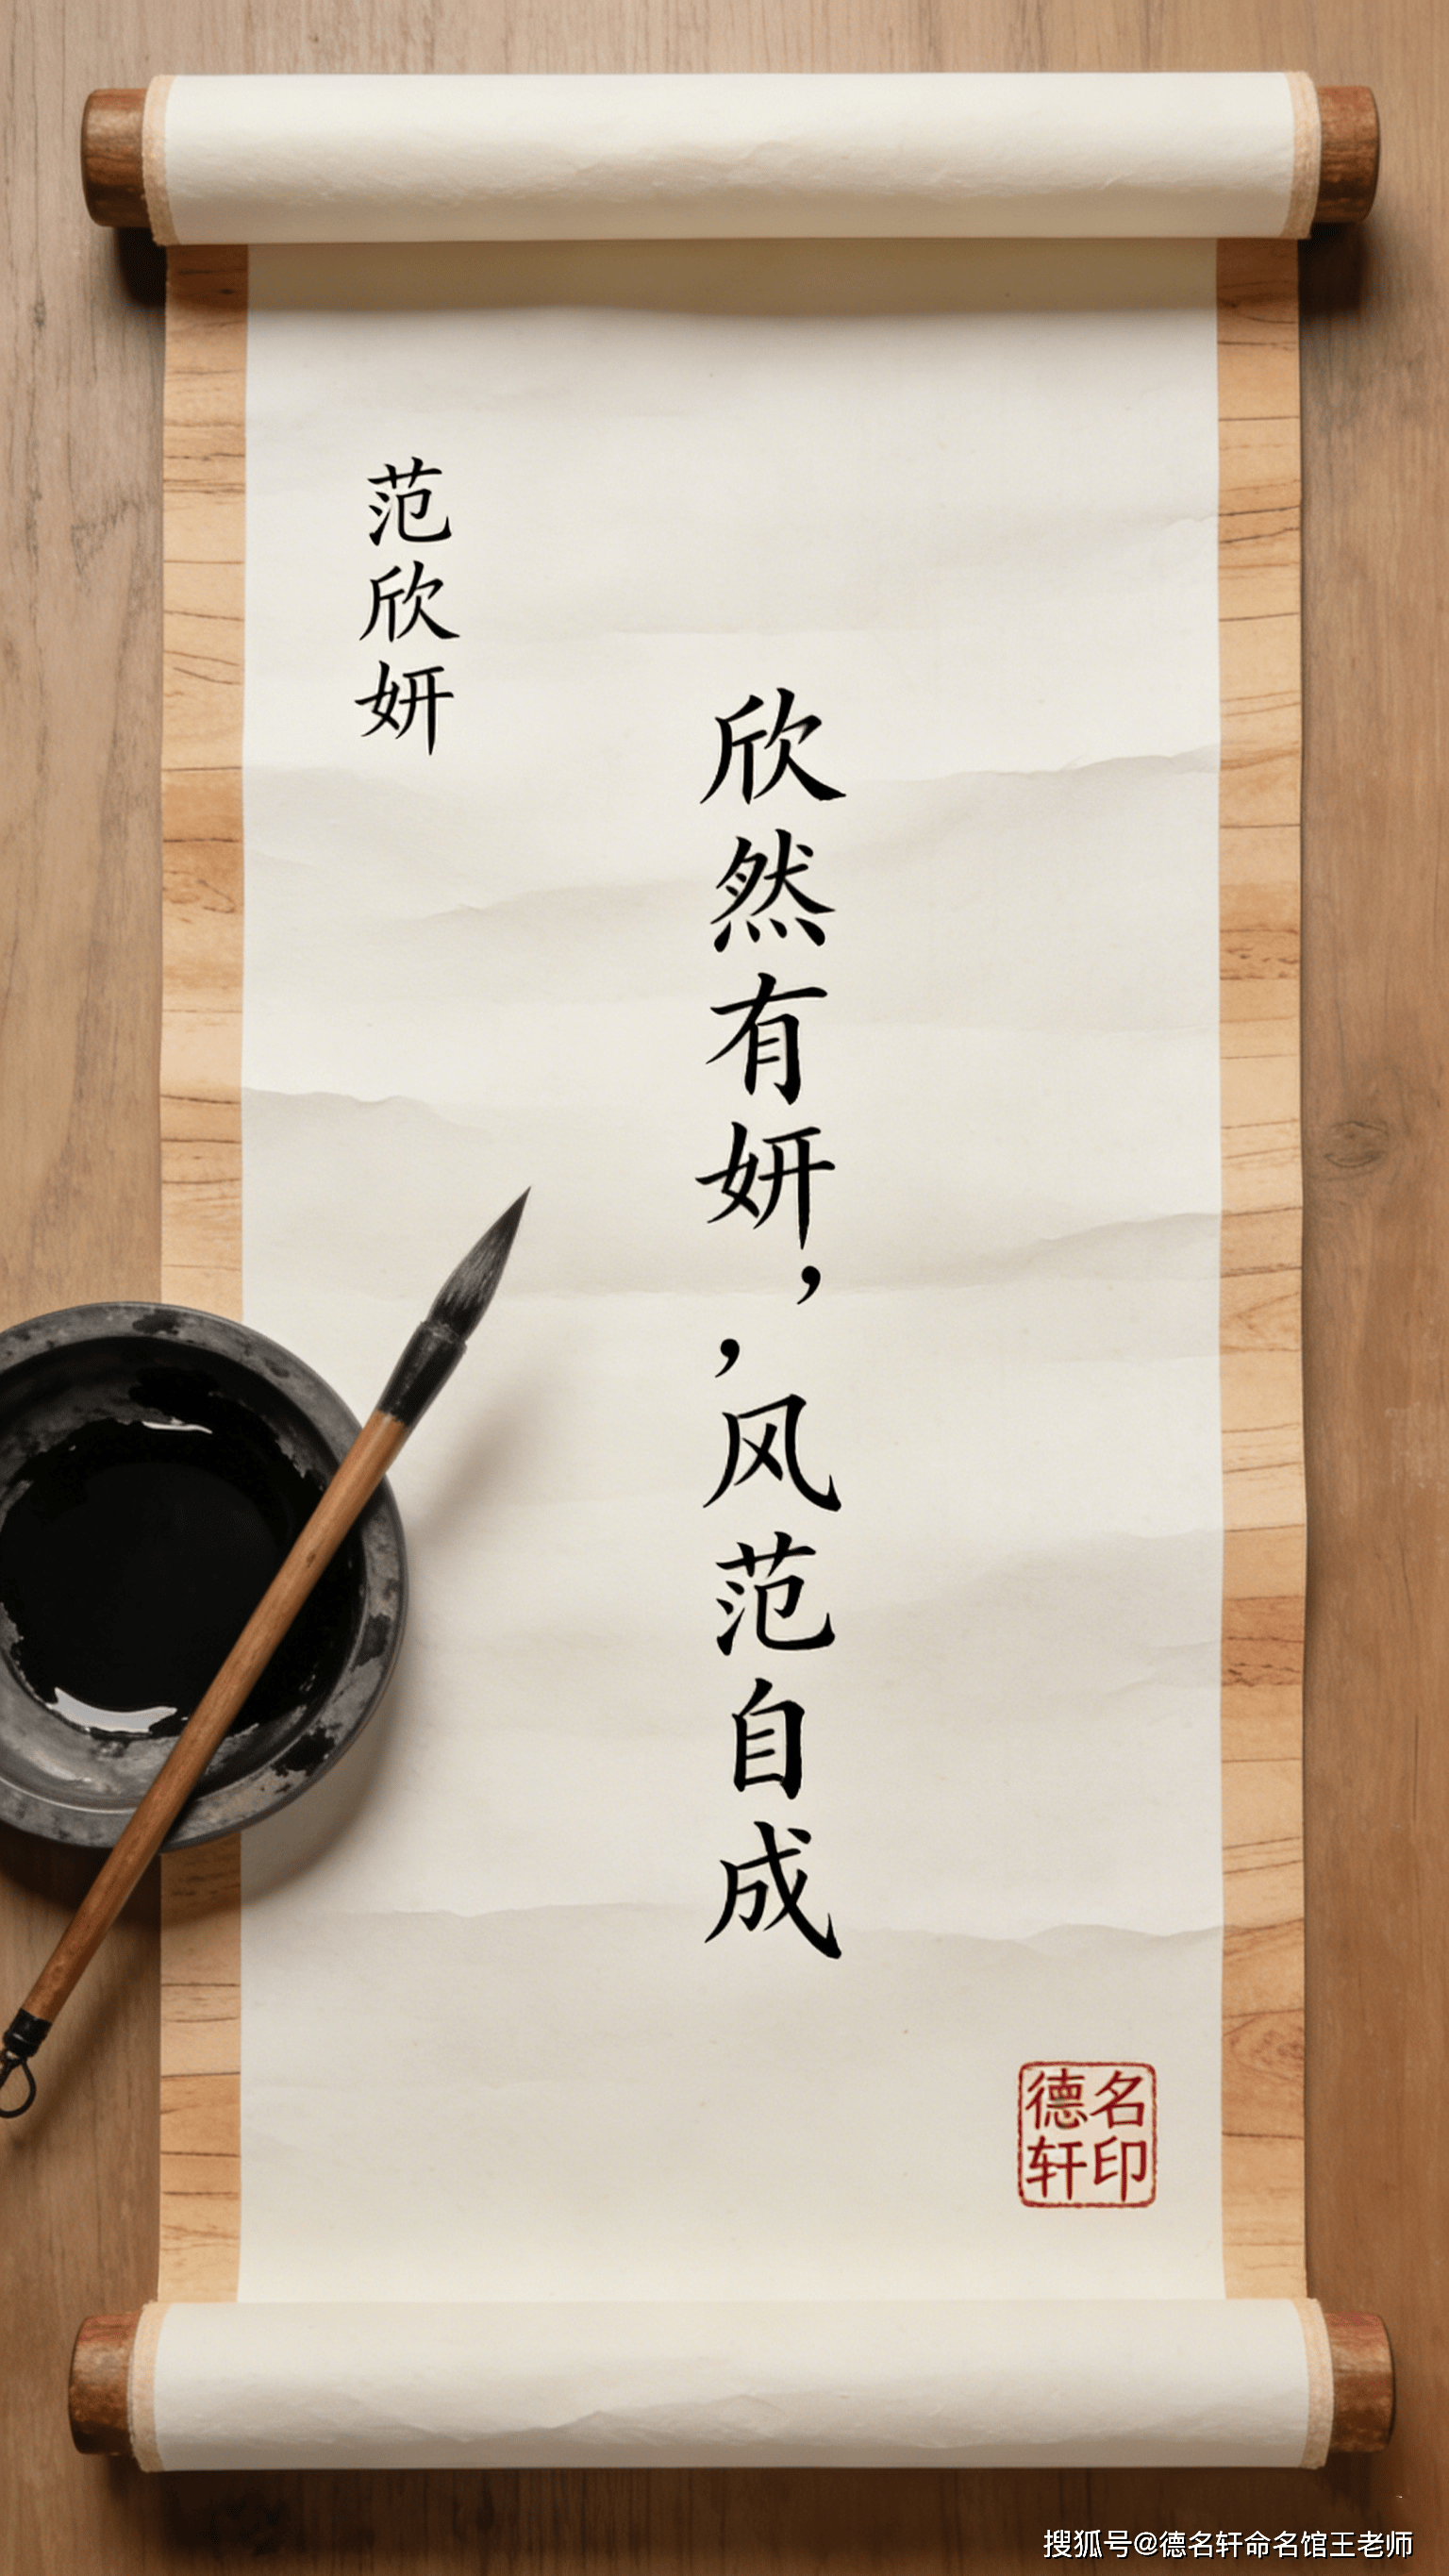 范欣妍
欣然有妍，，风范自成
德名
轩印
搜狐号@德名轩命名馆王老师